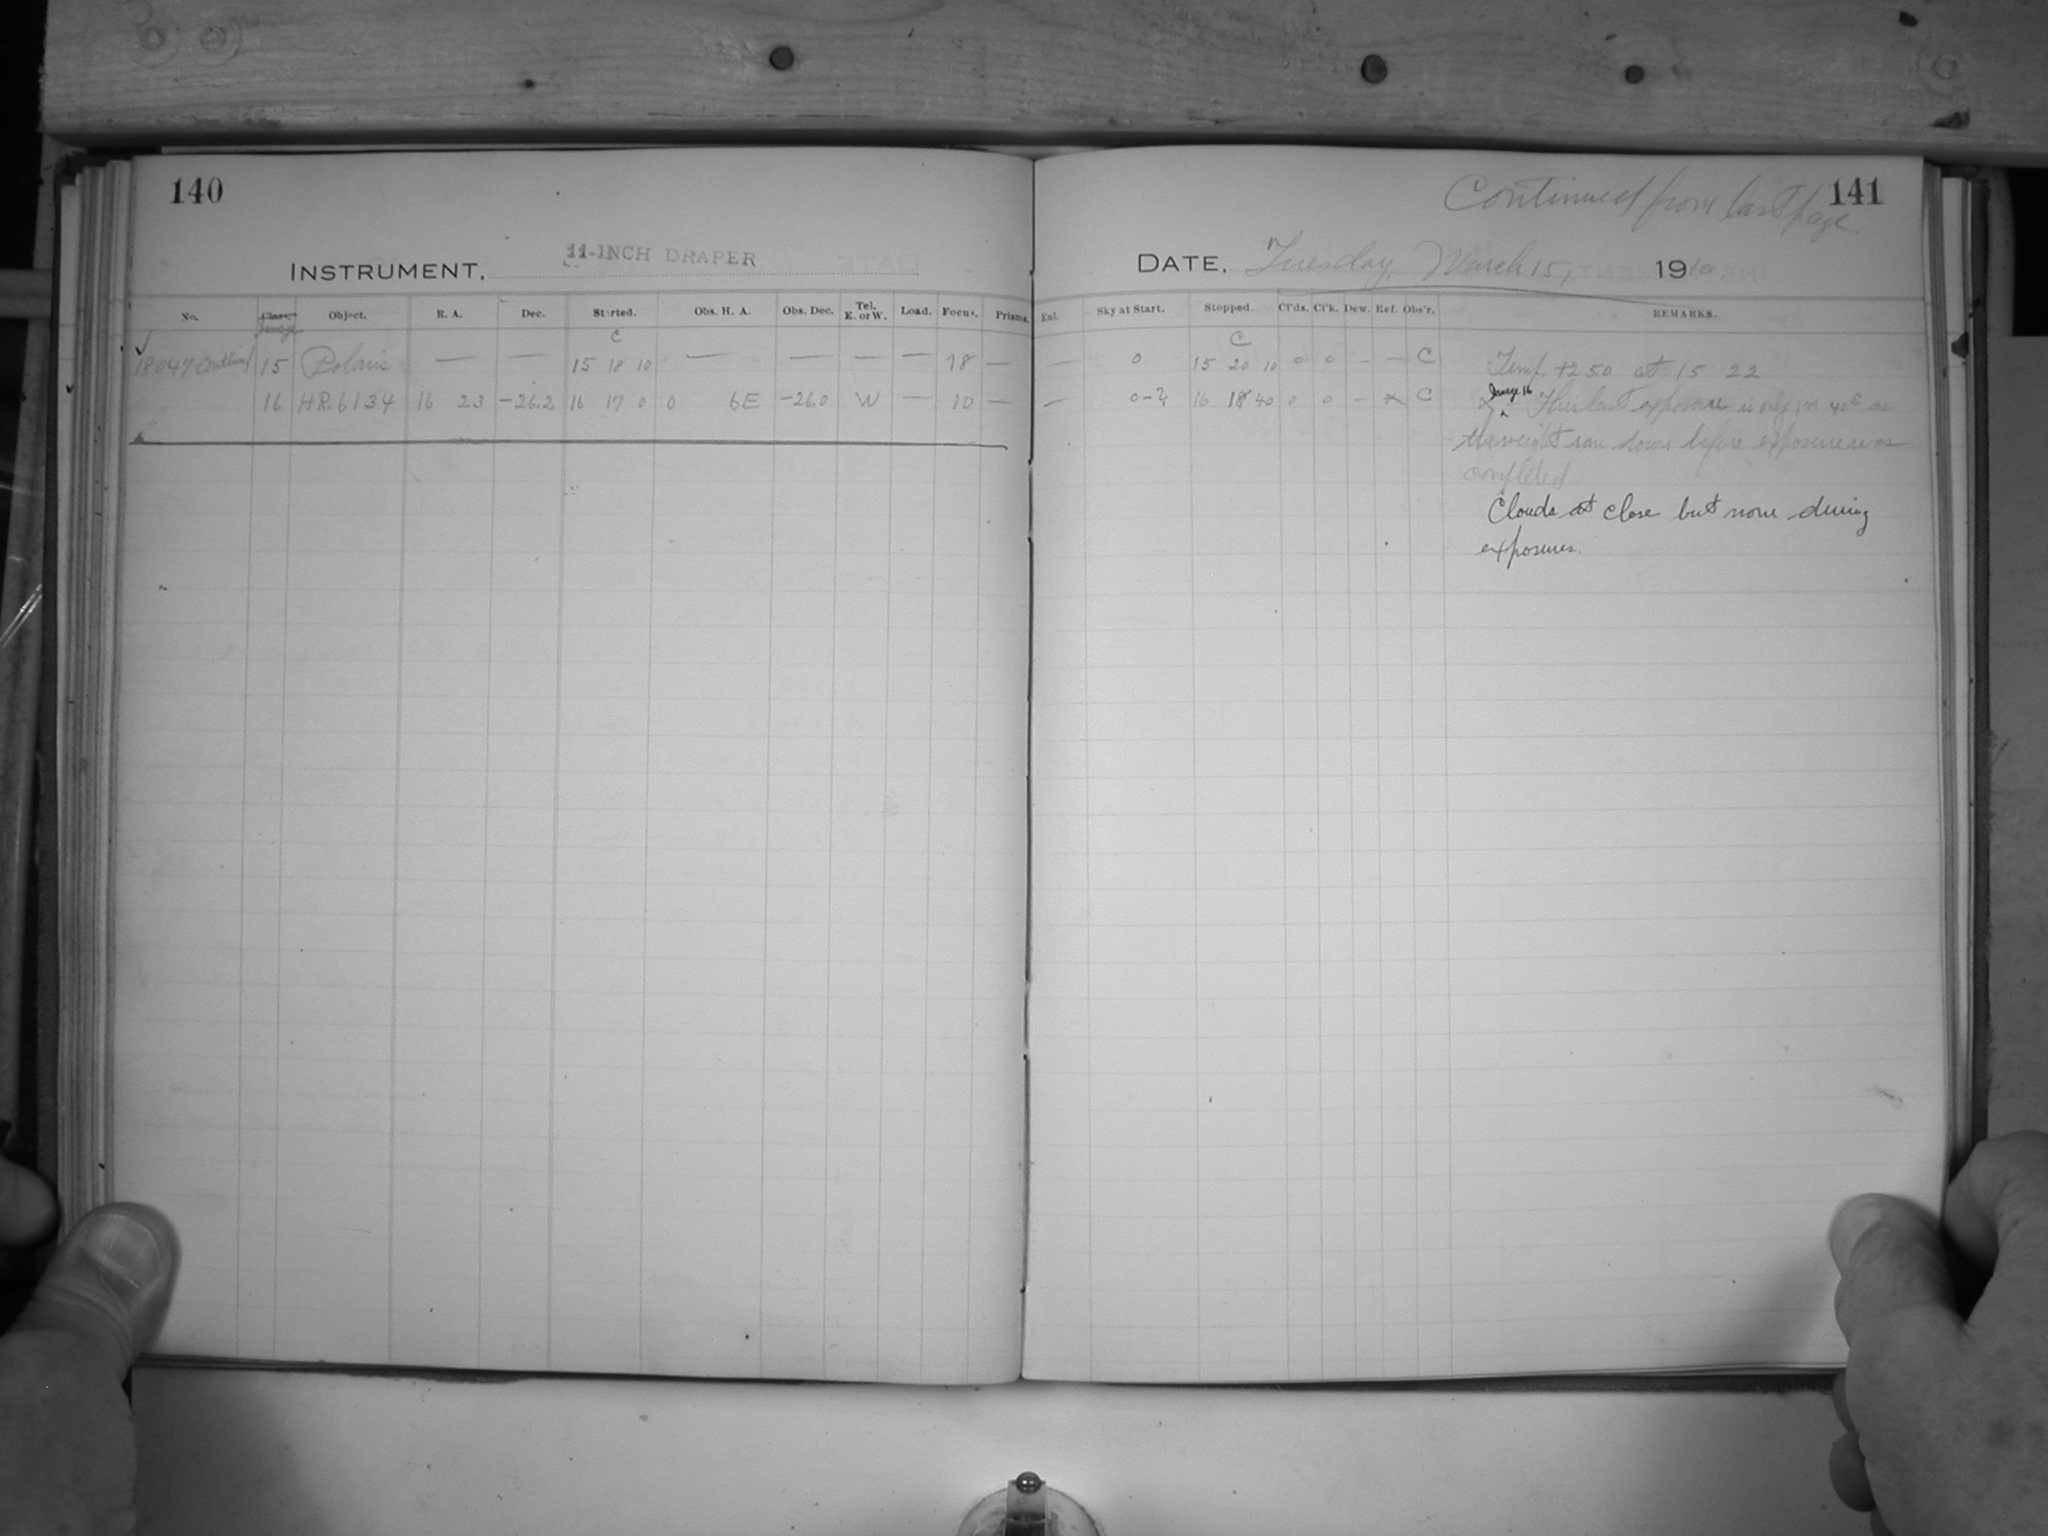 140
INSTRUMENT. 11-INCH DRAPER
No. Class. Object. R. A. Dec. Started. Obs. H. A. Obs. Dec. Tel. E. or W. Load. Focus. Prisms.
Image
C
✓
18047 Continued 15 Polaris — — 15 18 10 — — — — 18 —
16 H.R. 6134 16 23 -26.2 16 17 0 0 6E -26.0 W — 10 —
Continued from last page
141
DATE. Tuesday, March 15, 1910
Exl. Sky at Start. Stopped. Cl'ds. Cl'k. Dew. Ref. Obs'r. REMARKS.
C
— 0 15 20 10 0 0 - - C Temp. +25.0 at 15 22
Image 16
— 0-? 16 18 40 0 0 - x C x This last exposure is only 1m 40s as
the weight ran down before exposure was
completed
Clouds at close but none during
exposures.